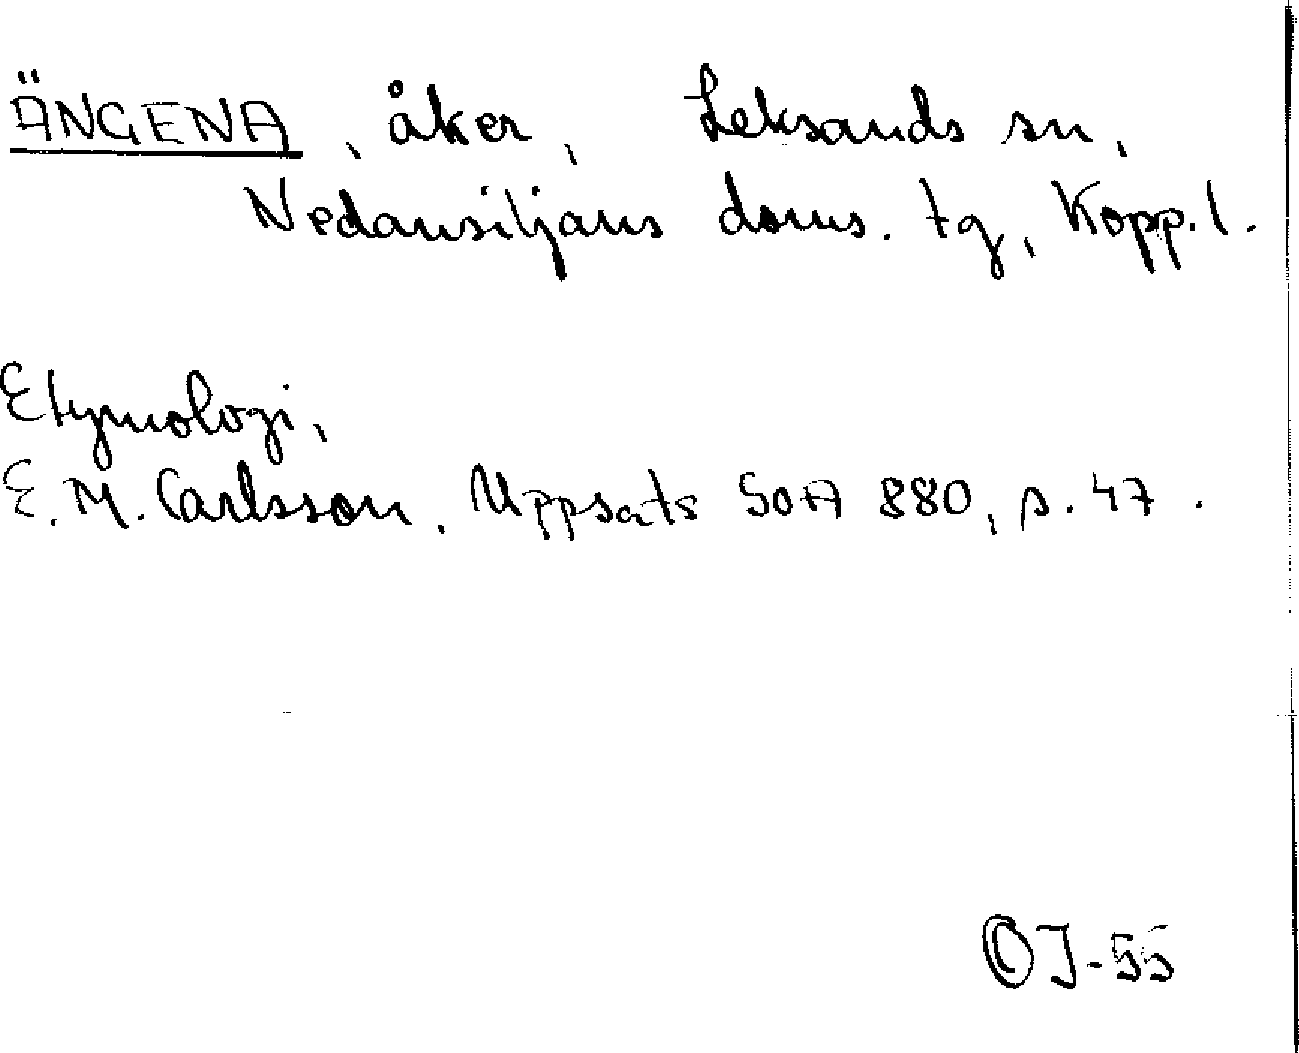 ÄNGENA, åker, Leksands sn,
Nedansiljans doms. tg, Kopp. l.
Etymologi,
E. M. Carlsson. Uppsats SOA 880, s. 47.
OJ-55